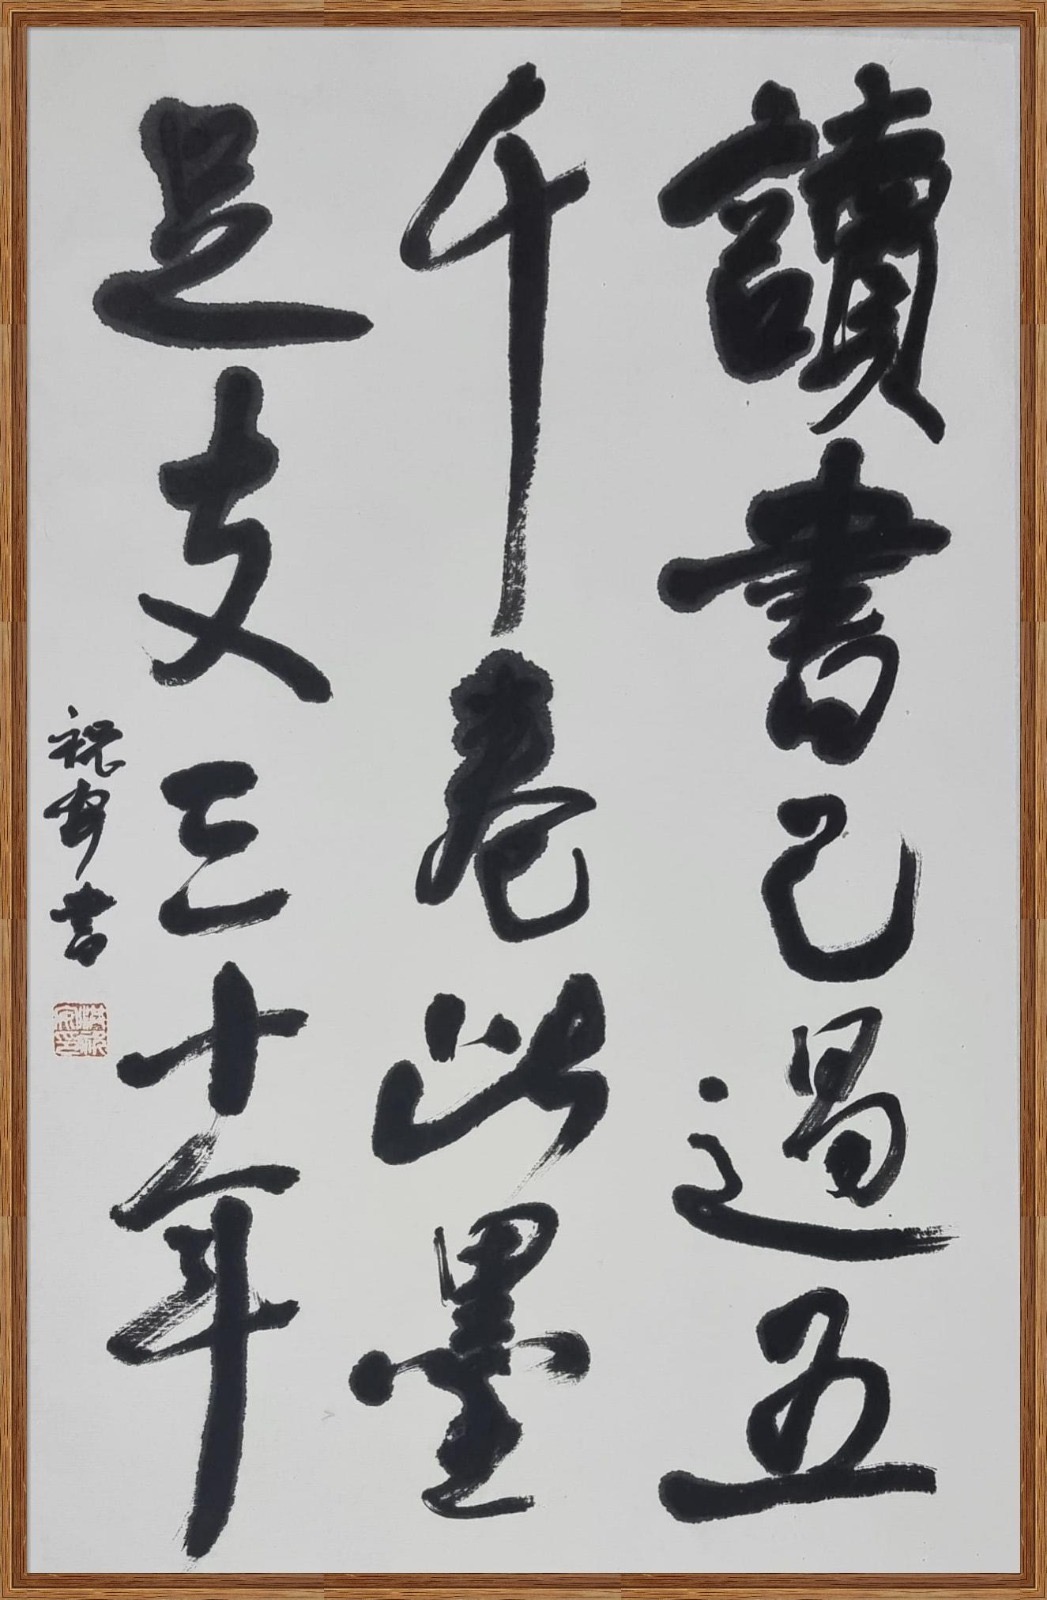 讀書已過五
千卷此墨
足支三十年
祝安書